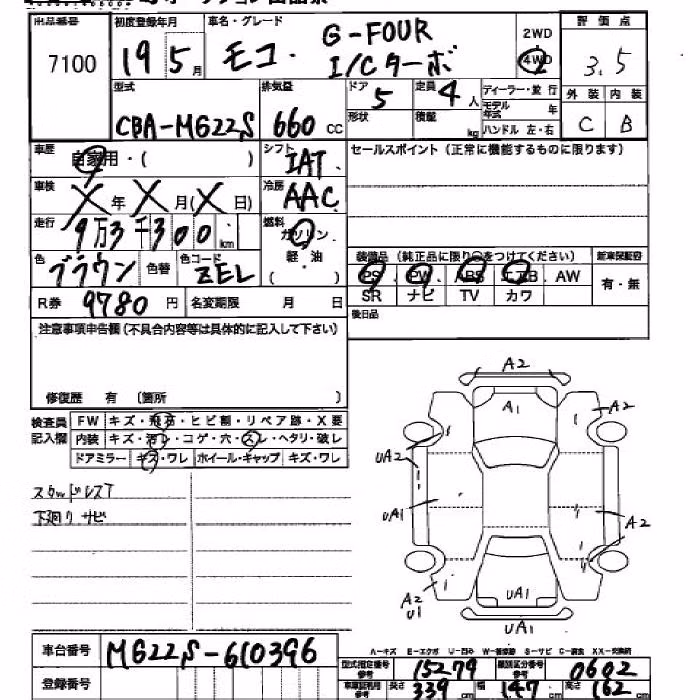 出品番号 初度登録年月 車名・グレード 2WD 評価点
7100 19 5月 モコ G-FOUR I/Cターボ 4WD 3.5
型式 排気量 ドア 定員 ディーラー・並行 外装 内装
CBA-MG22S 660 cc 5 4人 モデル年式 年 C B
形状 積載 kg ハンドル 左・右
車歴 自家用・( ) シフト IAT セールスポイント (正常に機能するものに限ります)
車検 X年X月(X日) 冷房 AAC
走行 9万3千300km 燃料 ガソリン
軽・油
( )
色 ブラウン 色替 色コード ZEL
装備品 (純正品に限り○をつけてください) 新車保証書
PS・PW・ABS・エアB・AW 有・無
SR ナビ TV カワ
R券 9780円 名変期限 月 日 後日品
注意事項申告欄 (不具合内容等は具体的に記入して下さい)
修復歴 有 〔箇所 〕
検査員記入欄 FW キズ・飛石・ヒビ割・リペア跡・X要
内装 キズ・汚レ・コゲ・穴・スレ・ヘタリ・破レ
ドアミラー キズ・ワレ ホイール・キャップ キズ・ワレ
スタッドレスT
下廻りサビ
A2
A1
A2
UA2
UA1
A2
A2
U1
UA1
UA1
A-キズ E-エクボ U-凹み W-板金跡 S-サビ C-腐食 XX-交換済
車台番号 MG22S-610396
型式指定番号 参考 15279 類別区分番号 参考 0602
登録番号
車庫証明利用 参考 長さ 339cm 幅 147cm 高さ 162cm